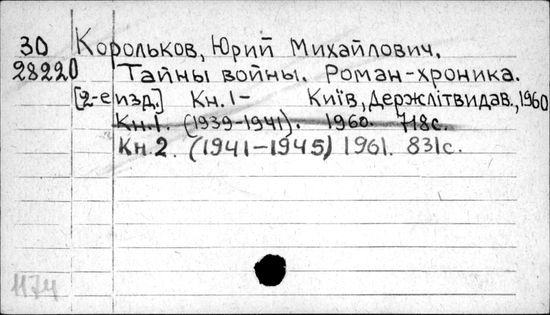 30 Корольков, Юрий Михайлович.
28220 Тайны войны. Роман-хроника.
[2-е изд.] Кн. 1- Київ, Держлітвидав., 1960
Кн.1. (1939-1941). 1960. 718с.
Кн.2. (1941-1945) 1961. 831с.
1174